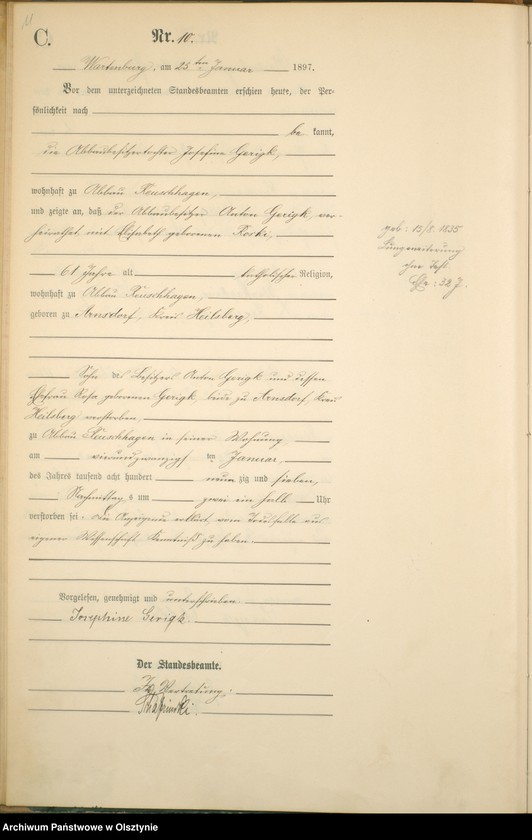 11
C.
Nr. 10.
Wartenburg, am 25 ten Januar 1897.
Vor dem unterzeichneten Standesbeamten erschien heute, der Per-
sönlichkeit nach
be kannt,
die Abbaubesitzertochter Josefine Gerigk,
wohnhaft zu Abbau Reuschhagen,
und zeigte an, daß der Abbaubesitzer Anton Gerigk, ver-
heirathet mit Elisabeth geborenen
61 Jahre alt, katholischer Religion,
wohnhaft zu Abbau Reuschhagen,
geboren zu Arnsdorf, Kreis Heilsberg,
Sohn des Besitzers Anton Gerigk und dessen
Ehefrau Rosa geborenen Gerigk, beide zu Arnsdorf, Kreis
Heilsberg verstorben,
zu Abbau Reuschhagen in seiner Wohnung
am vierundzwanzigsten Januar
des Jahres tausend acht hundert neunzig und sieben,
Nachmittags um zwei ein halb Uhr
verstorben sei. Die Anzeigende erklärt, vom Todesfalle aus
eigener Wissenschaft Kenntniß zu haben.
Vorgelesen, genehmigt und unterschrieben
Josephine Gerigk.
Der Standesbeamte.
In Vertretung:
geb: 15/8. 1835
Lungenentzündung
ohne Test.
Ehe: 32 J.
Archiwum Państwowe w Olsztynie